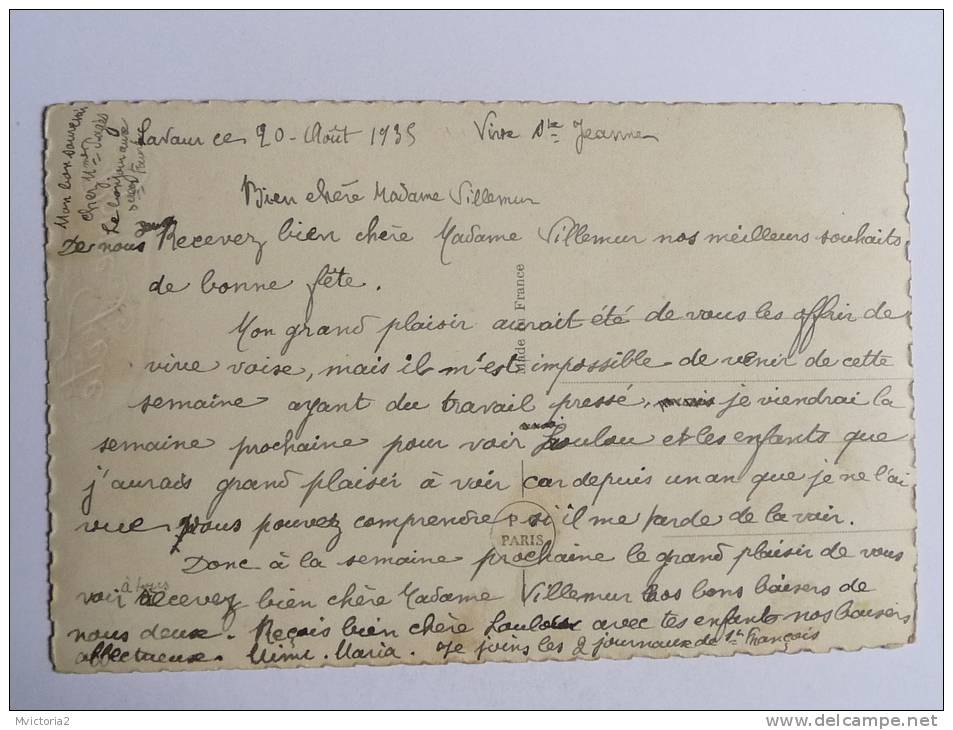 Lavaur ce 20 - Août 1935 Vive Ste Jeanne
Mon bon souvenir
chez Mmes
Le bonjour aux
Bien chère Madame Villemur
De nous deux Recevez bien chère Madame Villemur nos meilleurs souhaits
de bonne fête.
Mon grand plaisir aurait été de vous les offrir de
vive voise, mais il m'est impossible de venir de cette
semaine ayant du travail pressé, mais je viendrai la
semaine prochaine pour voir aussi Loulou et les enfants que
j'aurais grand plaisir à voir car depuis un an que je ne l'ai
vue vous pouvez comprendre si il me tarde de la voir.
Donc à la semaine prochaine le grand plaisir de vous
voir à tous recevez bien chère Madame Villemur nos bons baisers de
nous deux. Reçois bien chère Loulou avec tes enfants nos baisers
affectueux. Mimi. Maria. Je joins les 2 journaux de St François
Made in France
P-
PARIS
Mvictoria2
delcampe.net